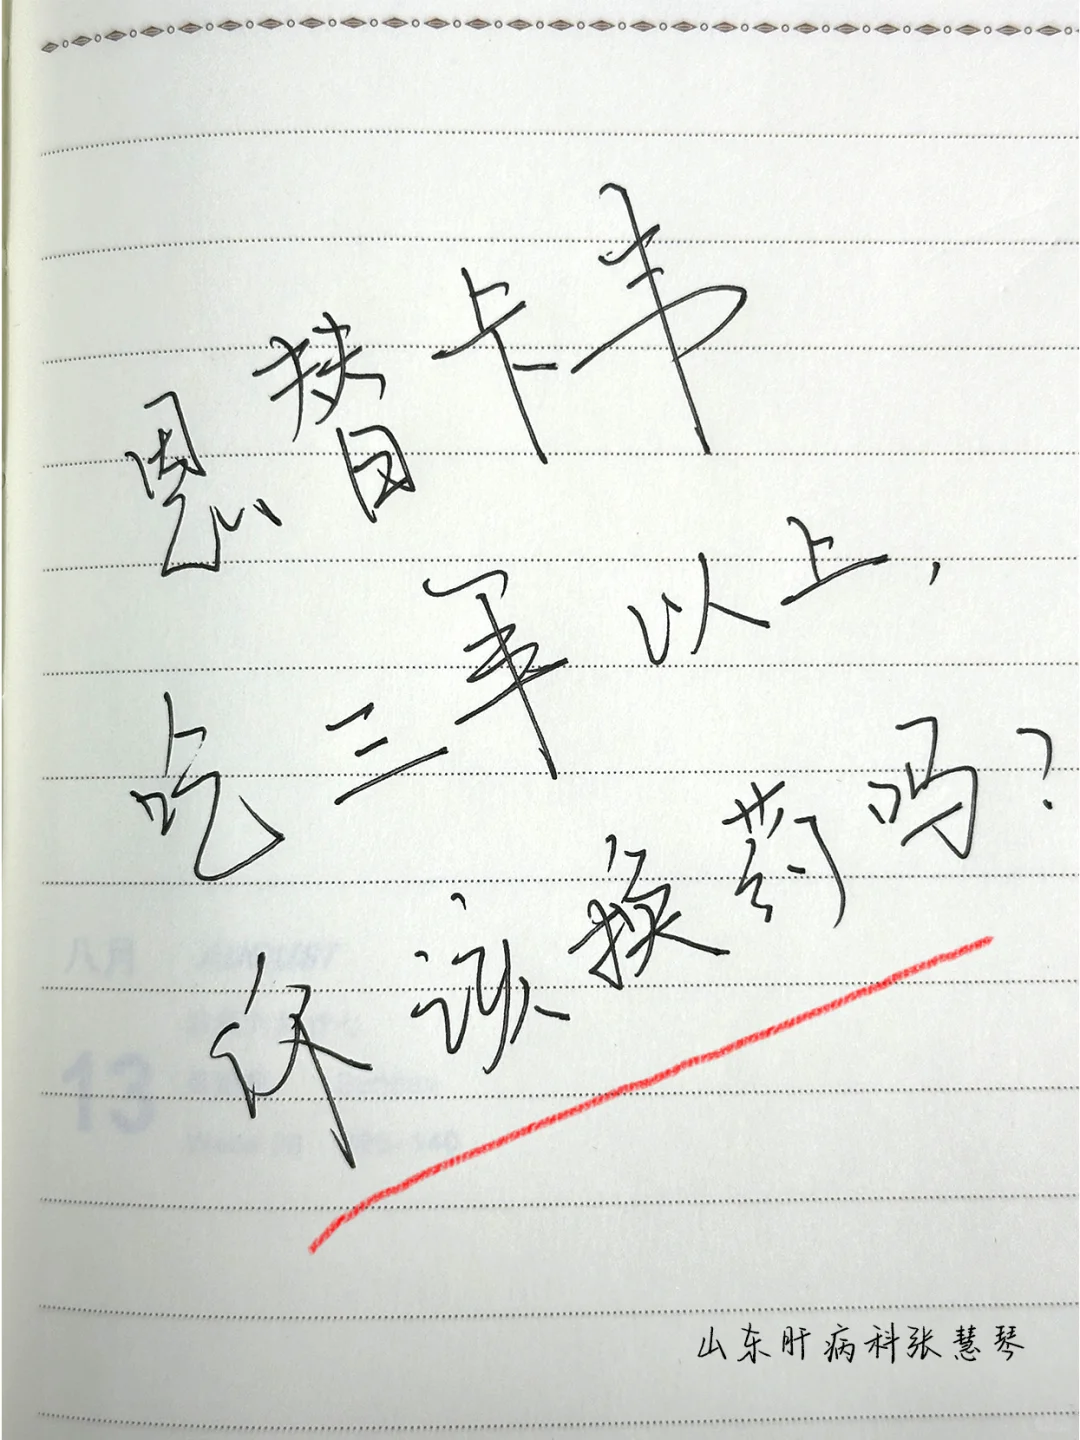 恩替卡韦
吃三年以上，
你该换药吗？
八月
13
山东肝病科张慧琴